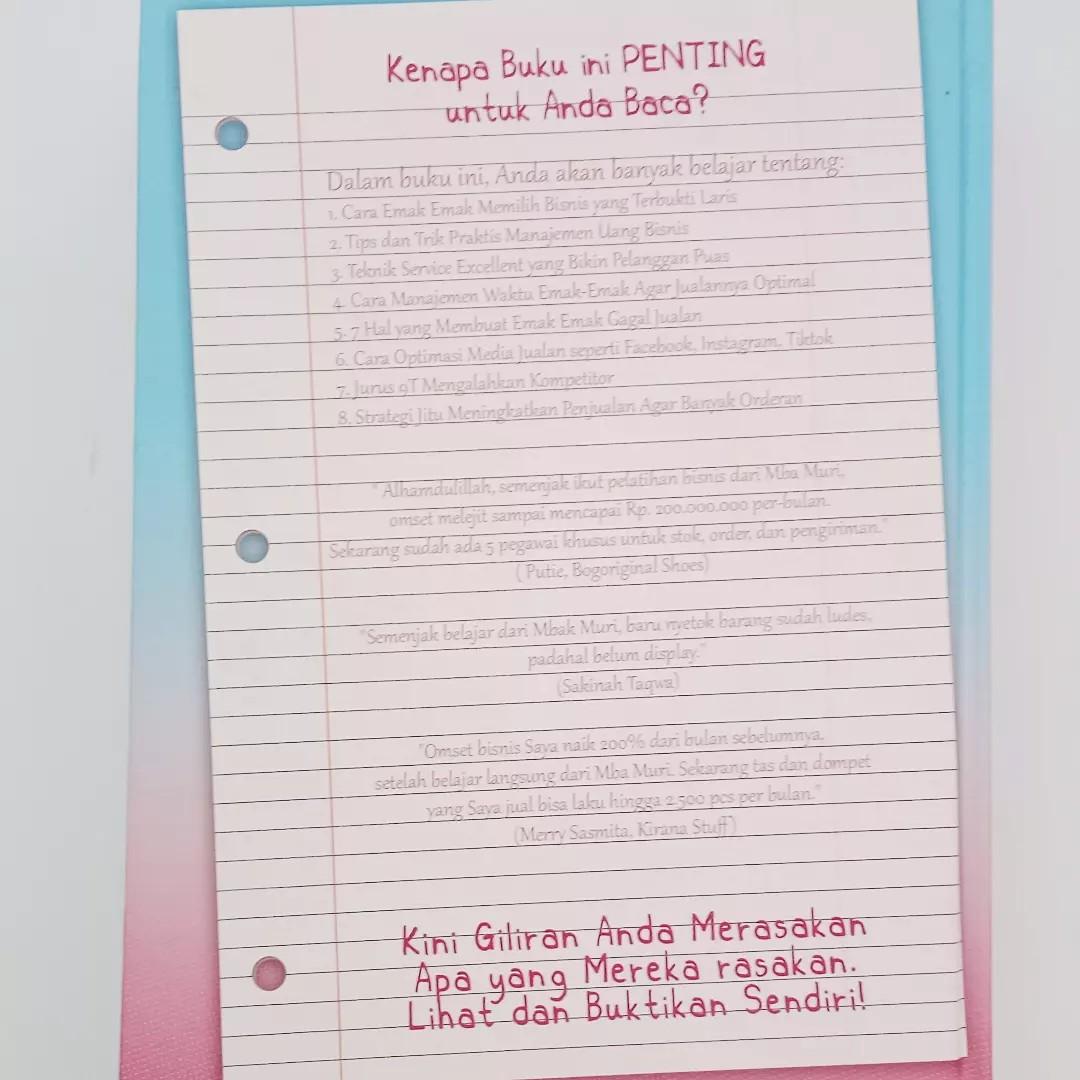 Kenapa Buku ini PENTING
untuk Anda Baca?
Dalam buku ini, Anda akan banyak belajar tentang:
1. Cara Emak Emak Memilih Bisnis yang Terbukti Laris
2. Tips dan Trik Praktis Manajemen Uang Bisnis
3. Teknik Service Excellent yang Bikin Pelanggan Puas
4. Cara Manajemen Waktu Emak-Emak Agar Jualannya Optimal
5. 7 Hal yang Membuat Emak Emak Gagal Jualan
6. Cara Optimasi Media Jualan seperti Facebook, Instagram, Tiktok
7. Jurus 9T Mengalahkan Kompetitor
8. Strategi Jitu Meningkatkan Penjualan Agar Banyak Orderan
" Alhamdulillah, semenjak ikut pelatihan bisnis dari Mba Muri,
omset melejit sampai mencapai Rp. 200.000.000 per-bulan.
Sekarang sudah ada 5 pegawai khusus untuk stok, order, dan pengiriman."
( Putie, Bogoriginal Shoes)
"Semenjak belajar dari Mbak Muri, baru nyetok barang sudah ludes,
padahal belum display."
(Sakinah Taqwa)
"Omset bisnis Saya naik 200% dari bulan sebelumnya,
setelah belajar langsung dari Mba Muri. Sekarang tas dan dompet
yang Saya jual bisa laku hingga 2.500 pcs per bulan."
(Merry Sasmita, Kirana Stuff)
Kini Giliran Anda Merasakan
Apa yang Mereka rasakan.
Lihat dan Buktikan Sendiri!